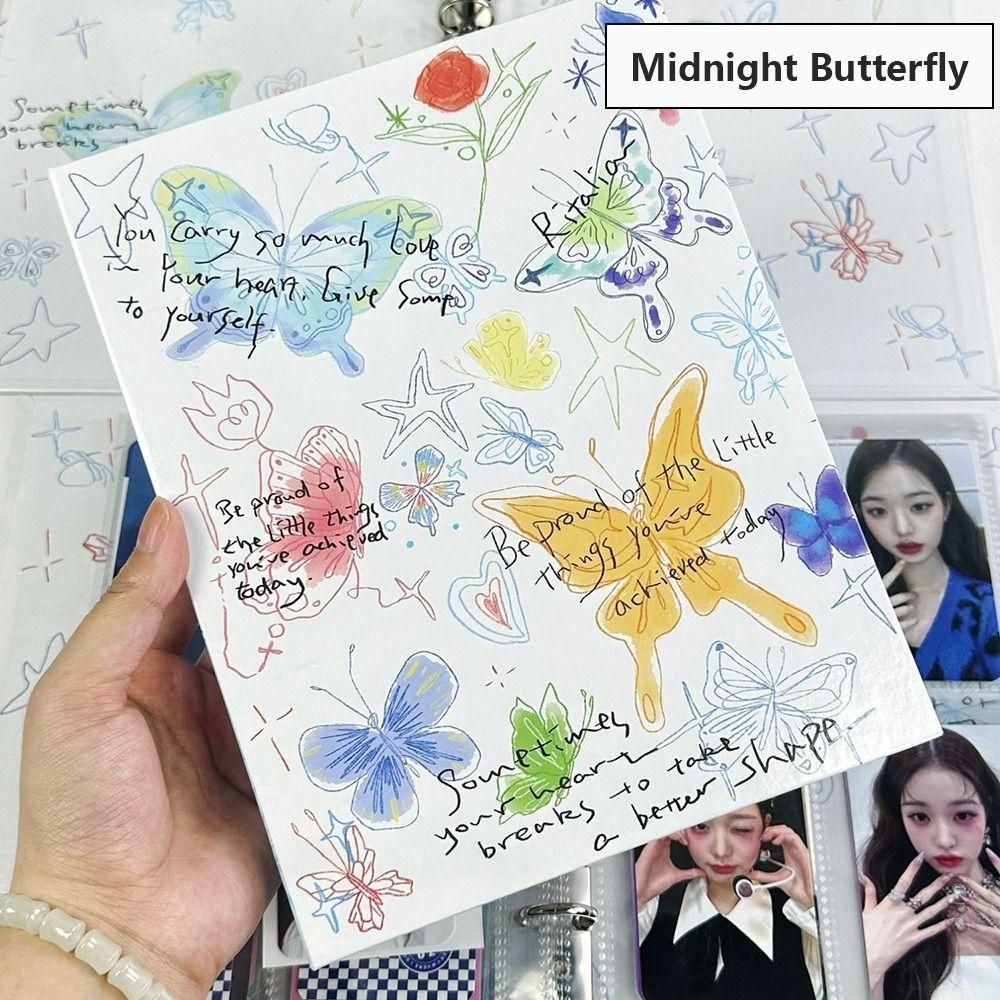 Midnight Butterfly
Sometimes
your heart
breaks to
You Carry so much Love
In Your heart. Give Some
to yourself.
Ritalian
Be proud of
the Little things
you've achieved
today.
Be Proud of the Little
things you've
achieved today
Sometimes
your heart
breaks to take
a better shape.